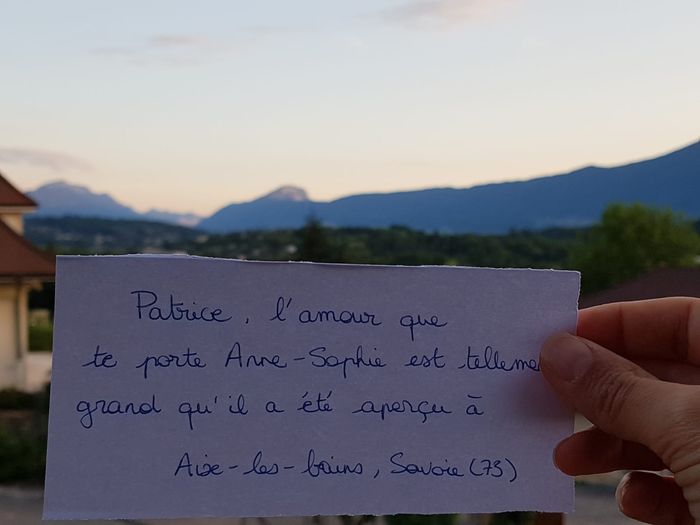 Patrice, l'amour que
te porte Anne-Sophie est telleme
grand qu'il a été aperçu à
Aix-les-bains, Savoie (73)